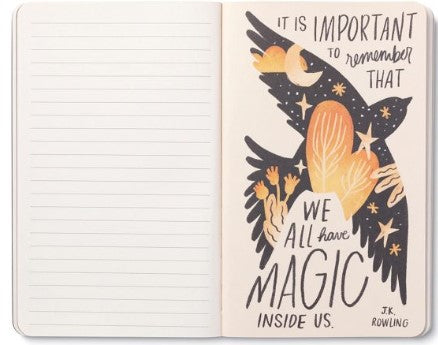 IT IS IMPORTANT
TO remember
THAT
WE
ALL have
MAGIC
INSIDE US.
J.K.
ROWLING